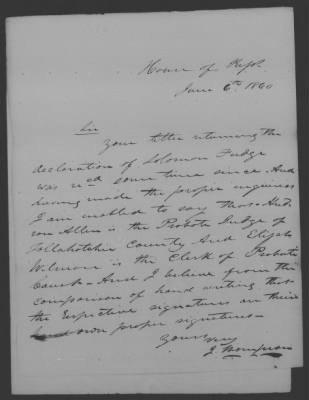 House of Reps
June 6th 1860
Sir
Your letter returning the
declaration of Solomon Fudge
was recd some time since. And
having made the proper enquiries
I am enabled to say that
Allen is the Probate Judge of
Tallahatchie County And Elijah
is the Clerk of Probate
Court. And I believe from the
comparison of hand writing that
the respective signatures are their
own proper signatures
Yours Very
J. Thompson